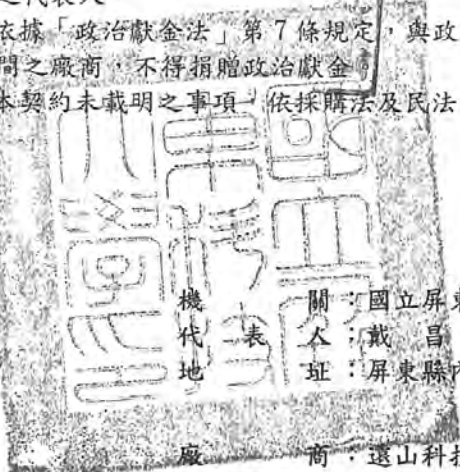 之代表人
依據「政治獻金法」第7條規定，與政
間之廠商，不得捐贈政治獻金。
本契約未載明之事項，依採購法及民法
機關：國立屏東
代表人：戴昌
地址：屏東縣內
廠商：遠山科技